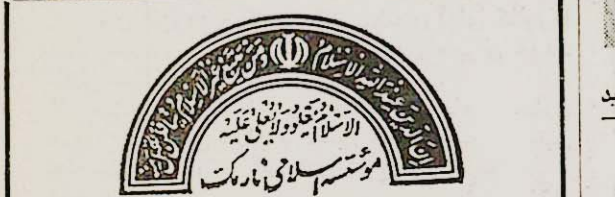 ان الدین عند الله الاسلام ومن یبتغ غیر الاسلام دینا فلن یقبل منه
الاسلام یعلو ولا یعلی علیه
موسسه اسلامی نارمک
ید